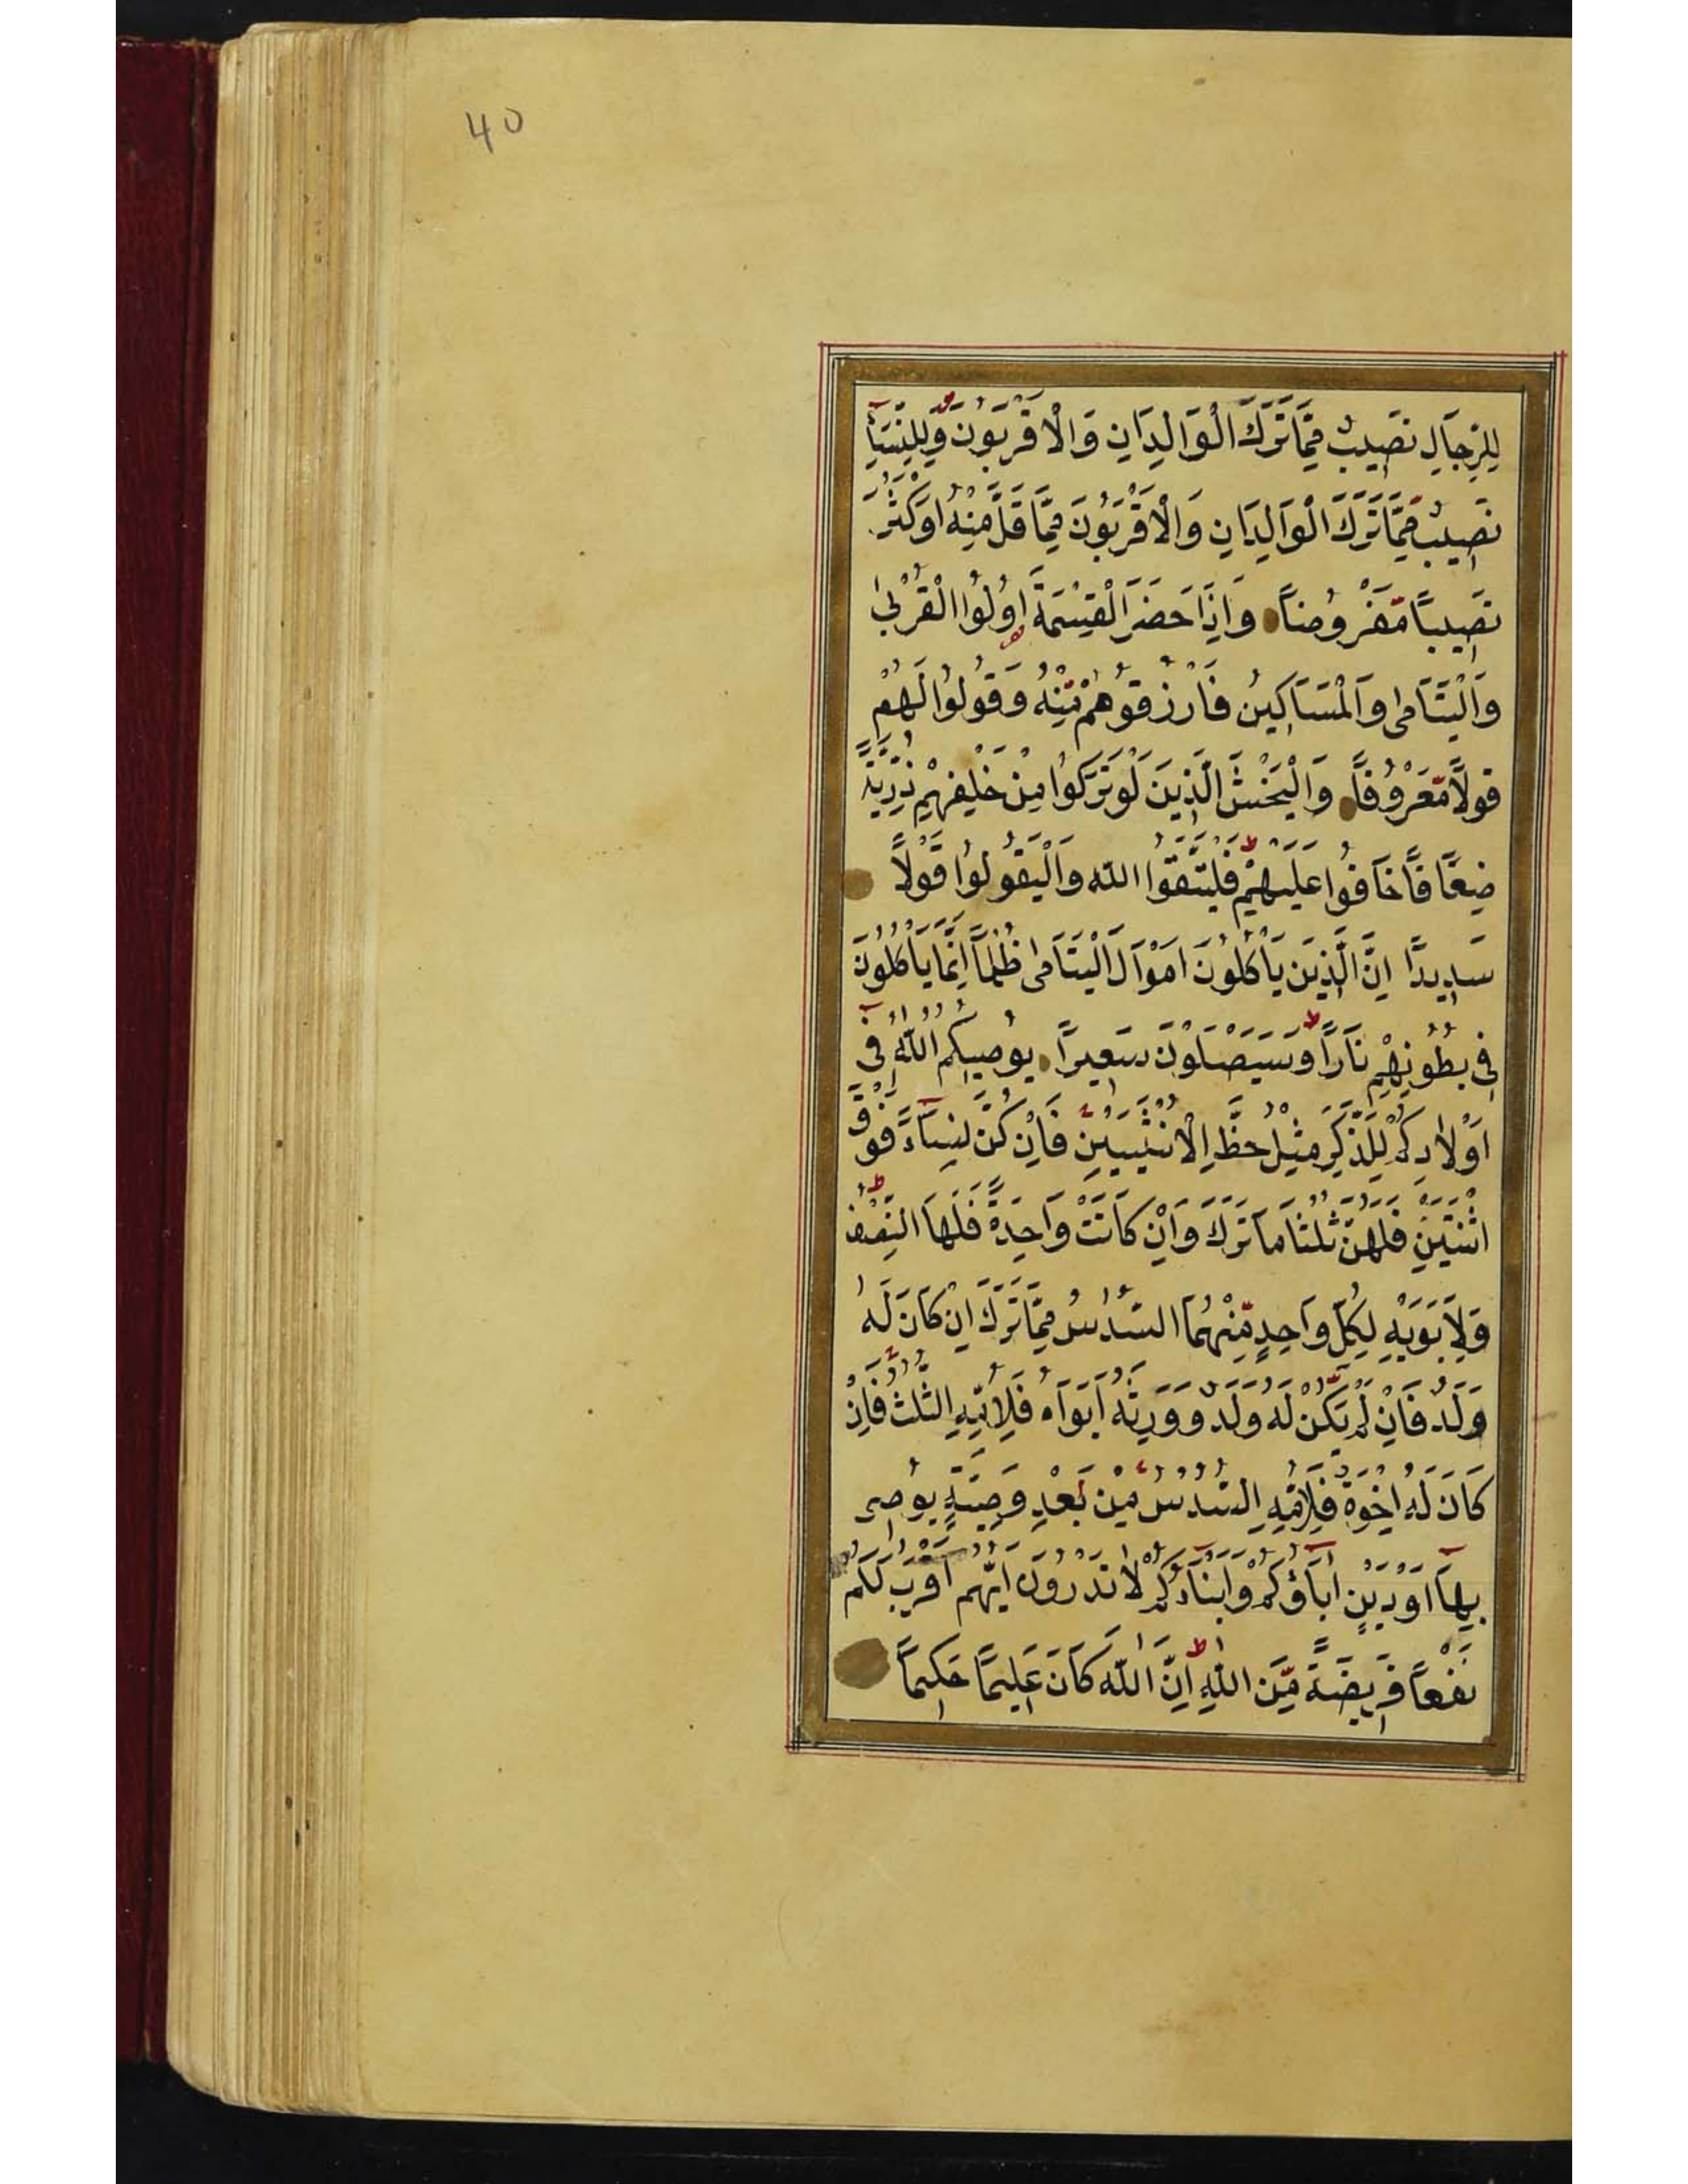 40
لِلرِّجَالِ نَصِيبٌ مِمَّا تَرَكَ الْوَالِدَانِ وَالْاَقْرَبُونَ وَلِلنِّسَآءِ
نَصِيبٌ مِمَّا تَرَكَ الْوَالِدَانِ وَالْاَقْرَبُونَ مِمَّا قَلَّ مِنْهُ اَوْ كَثُرَ
نَصِيبًا مَّفْرُوضًا وَاِذَا حَضَرَ الْقِسْمَةَ اُولُوا الْقُرْبٰى
وَالْيَتَامٰى وَالْمَسَاكِينُ فَارْزُقُوهُمْ مِّنْهُ وَقُولُوا لَهُمْ
قَوْلًا مَّعْرُوفًا وَالْيَخْشَ الَّذِينَ لَوْ تَرَكُوا مِنْ خَلْفِهِمْ ذُرِّيَّةً
ضِعَافًا خَافُوا عَلَيْهِمْ فَلْيَتَّقُوا اللّٰهَ وَالْيَقُولُوا قَوْلًا
سَدِيدًا اِنَّ الَّذِينَ يَاْكُلُونَ اَمْوَالَ الْيَتَامٰى ظُلْمًا اِنَّمَا يَاْكُلُونَ
فِى بُطُونِهِمْ نَارًا وَسَيَصْلَوْنَ سَعِيرًا يُوصِيكُمُ اللّٰهُ فِى
اَوْلَادِكُمْ لِلذَّكَرِ مِثْلُ حَظِّ الْاُنْثَيَيْنِ فَاِنْ كُنَّ نِسَآءً فَوْقَ
اثْنَتَيْنِ فَلَهُنَّ ثُلُثَا مَا تَرَكَ وَاِنْ كَانَتْ وَاحِدَةً فَلَهَا النِّصْفُ
وَلِاَبَوَيْهِ لِكُلِّ وَاحِدٍ مِّنْهُمَا السُّدُسُ مِمَّا تَرَكَ اِنْ كَانَ لَهُ
وَلَدٌ فَاِنْ لَمْ يَكُنْ لَهُ وَلَدٌ وَوَرِثَهُ اَبَوَاهُ فَلِاُمِّهِ الثُّلُثُ فَاِنْ
كَانَ لَهُ اِخْوَةٌ فَلِاُمِّهِ السُّدُسُ مِنْ بَعْدِ وَصِيَّةٍ يُوصِى
بِهَا اَوْ دَيْنٍ اٰبَآؤُكُمْ وَاَبْنَآؤُكُمْ لَا تَدْرُونَ اَيُّهُمْ اَقْرَبُ لَكُمْ
نَفْعًا فَرِيضَةً مِّنَ اللّٰهِ اِنَّ اللّٰهَ كَانَ عَلِيمًا حَكِيمًا